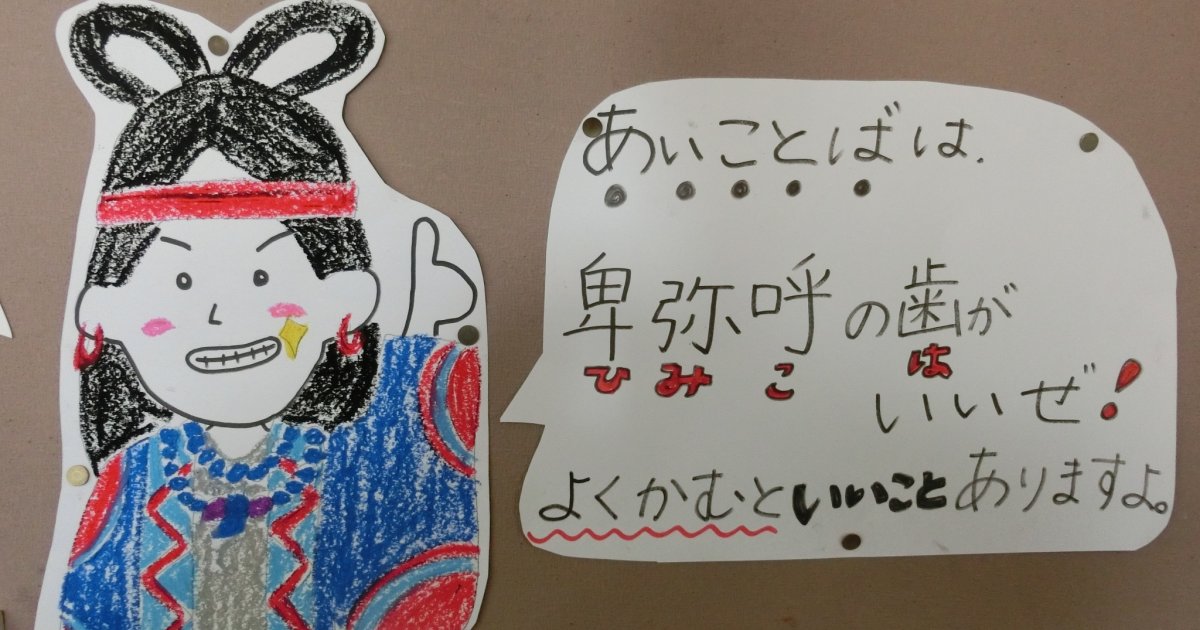 あいことばは.
卑弥呼の歯が
ひみこ は
いいぜ!
よくかむといいことありますよ。